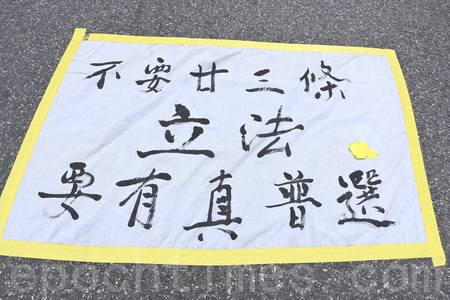 不要廿三條
立法
要有真普選
epochtimes.com